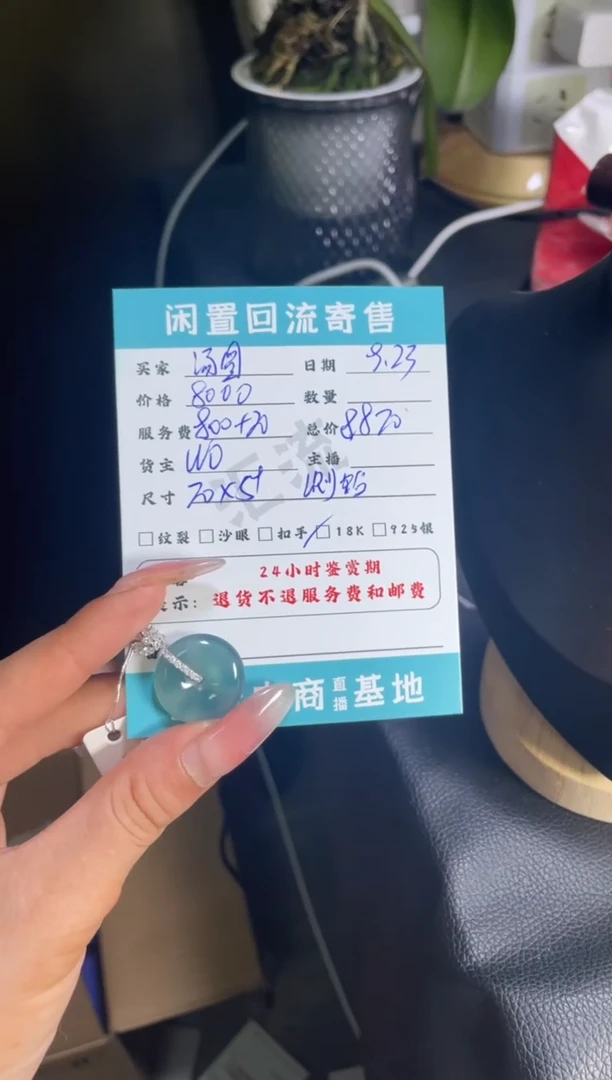 闲置回流寄售
买家 汤圆 日期 9.23
价格 8000 数量
服务费 800+20 总价 8820
货主 主播
尺寸 20×5
汇流
□纹裂 □沙眼 □扣手 □18K □925银
24小时鉴赏期
示：退货不退服务费和邮费
商直播基地